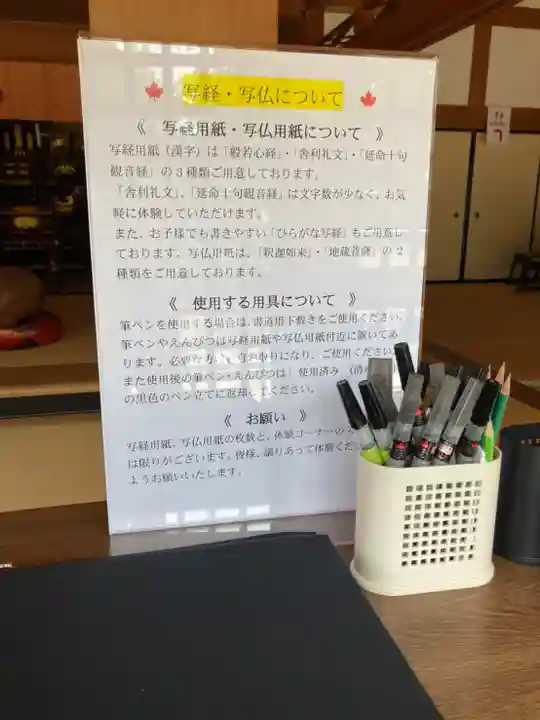 写経・写仏について
《 写経用紙・写仏用紙について 》
写経用紙（漢字）は「般若心経」・「舎利礼文」・「延命十句
観音経」の3種類ご用意しております。
「舎利礼文」、「延命十句観音経」は文字数が少なく、お気
軽に体験していただけます。
また、お子様でも書きやすい「ひらがな写経」もご用意し
ております。写仏用紙は、「釈迦如来」・「地蔵菩薩」の2
種類をご用意しております。
《 使用する用具について 》
筆ペンを使用する場合は、書道用下敷きをご使用ください。
筆ペンやえんぴつは写経用紙や写仏用紙付近に置いてあ
ります。必要な方は、お取りになり、ご使用ください。
また使用後の筆ペン・えんぴつは「使用済み
の黒色のペン立てに返却してください。
《 お願い 》
写経用紙、写仏用紙の枚数と、体験コーナーの
は限りがございます。皆様、譲りあって体験くだ
ようお願いいたします。